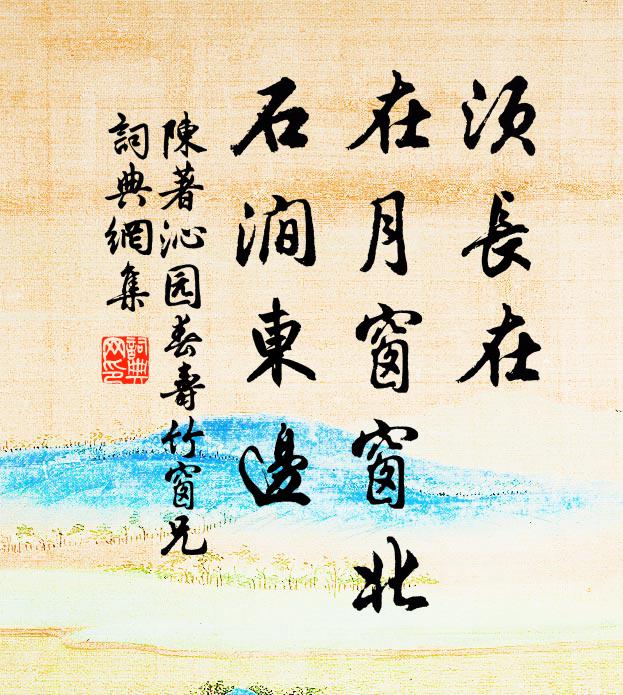 须長在
在月窗窗北
石澗東邊
陳著沁园春壽竹窗兄
詞典網集
詞典網印